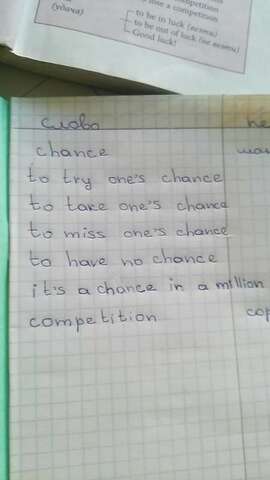 lose a competition
(удача)
to be in luck (везти)
to be out of luck (не везти)
Good luck!
слово
chance
to try one's chance
to take one's chance
to miss one's chance
to have no chance
it's a chance in a million
competition